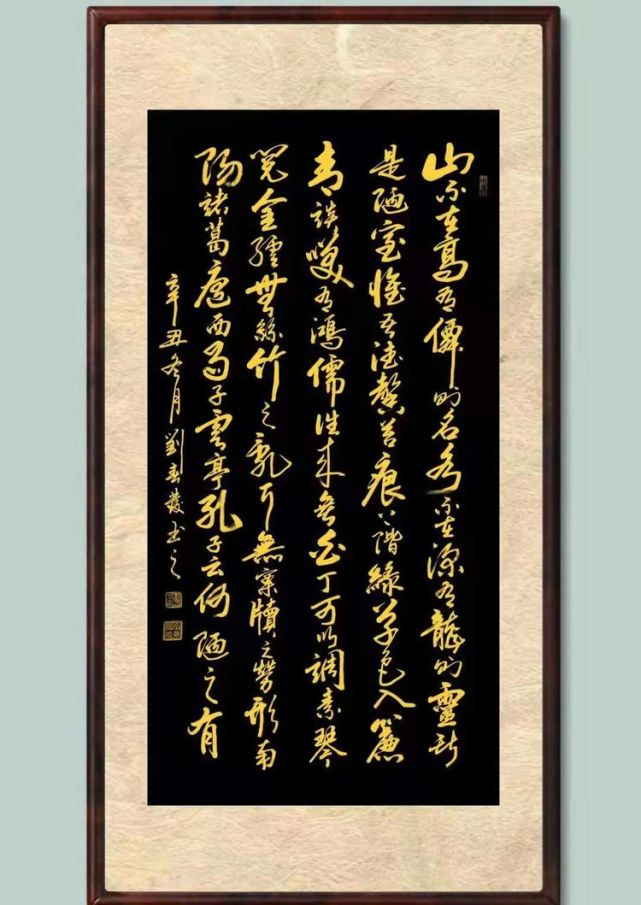 山不在高有僊則名水不在深有龍則靈斯
是陋室惟吾德馨苔痕上階綠草色入簾
青談咲有鴻儒往来無白丁可以調素琴
閱金經無絲竹之亂耳無案牘之勞形南
陽諸葛廬西蜀子雲亭孔子云何陋之有
辛丑冬月劉春發书之